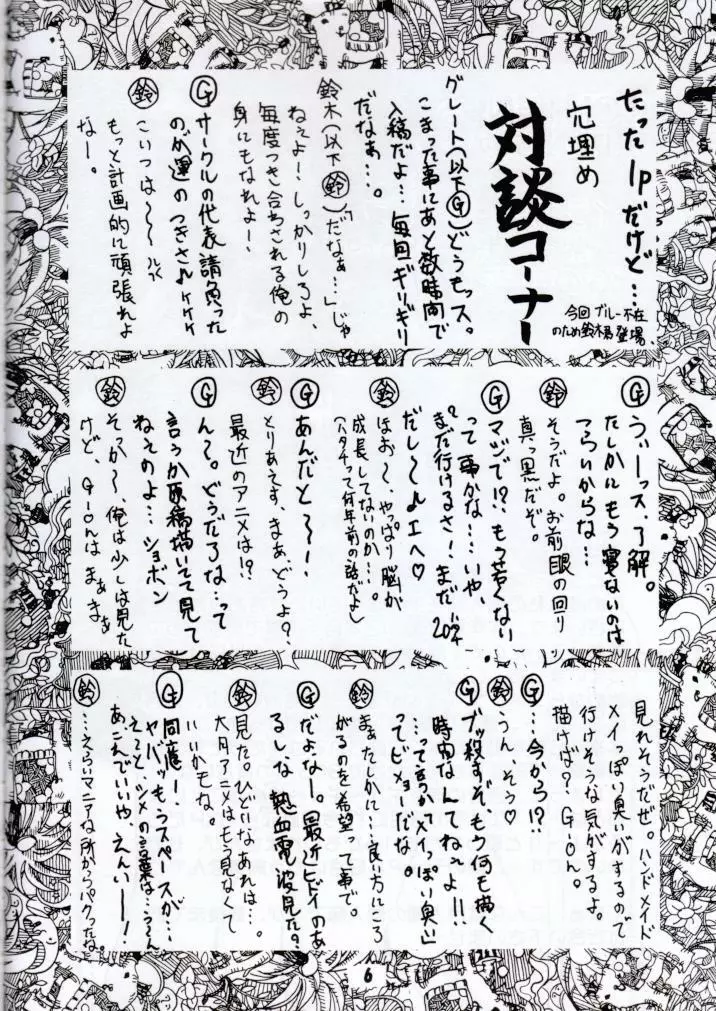 たった1Pだけど…
穴埋め
対談コーナー
今回 ブルー不在
のため鈴木君登場。
グレート(以下Ⓖ)どうもッス。
こまった事にあと数時間で
入稿だよ…毎回ギリギリ
だなぁ…。
鈴木(以下㊕「だなぁ…」じゃ
ねぇよ！しっかりしろよ、
毎度つき合わされる俺の
身にもなれよー！
Ⓖ サークルの代表請負った
のが運のつきさ♪ケケケ
鈴 こいつは〜〜
もっと計画的に頑張れよ
なー。
Ⓖ うぃーっス、了解。
たしかにもう寝ないのは
つらいからな…
鈴 そうだよ。お前眼の回り
真っ黒だぞ。
Ⓖ マジで!?もう若くない
って事かな……いや、
まだ行けるさ！まだ20才
だし〜♪エヘ♡
鈴 ほお〜、やっぱり脳が
成長してないのか…。
(ハタチって何年前の話だよ)
Ⓖ あんだと〜！
鈴 とりあえず、まあどうよ？
最近のアニメは!?
Ⓖ ん〜。どうだろな…って
言うか原稿描いてて見て
ねぇのよ…ショボン
鈴 そっか〜、俺は少しは見た
けど、G-onはまぁまぁ
見れそうだぜ。ハンドメイド
メイっぽい臭いがするので
行けそうな気がするよ。
描けば？G-on。
Ⓖ …今から!?
鈴 うん、そう♡
Ⓖ ブッ殺すぞもう何も描く
時間なんてねぇよ!!
…って言うかメイっぽい臭い
ってビミョーだな。
鈴 まぁたしかに…良い方にころ
がるのを希望って事で
Ⓖ だよなー。最近ヒドイのあ
るしな 熱血電波見た？
鈴 見た。ひどいなあれは…。
大月アニメはもう見なくて
いいかもな。
Ⓖ 同感ー、
ヤバッもうスペースが…
ええと、シメの言葉は…う〜ん
あこんでいいや、えんいー！
鈴 …えらいマニアな所からパクったね。
6